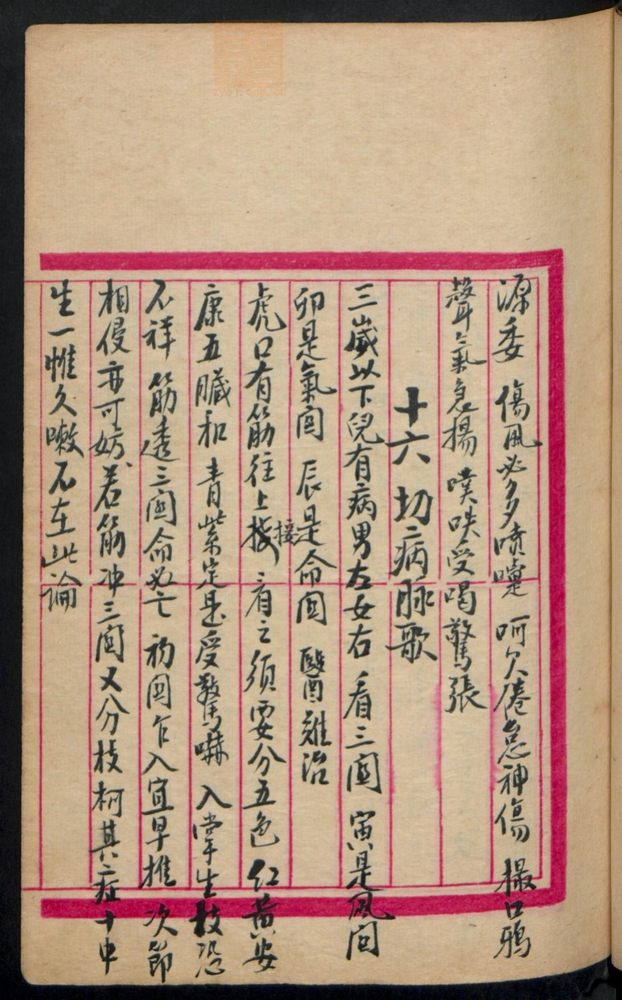 源委 傷風必多噴嚏 呵欠倦怠神傷 撮口鴉
聲氣急揚 噗哧受喝驚張
十六 切病脉歌
三歲以下兒有病男左女右 看三関 寅是風関
卯是氣関 辰是命関 醫難治
虎口有筋往上接 看之須要分五色 紅黃安
康五臟和 青紫定是受驚嚇 入掌生枝恐
不祥 筋透三関命必亡 初関乍入宜早推 次節
相侵亦可妨 若筋冲三関又分枝柯其症十中
生一惟久嗽不在此論